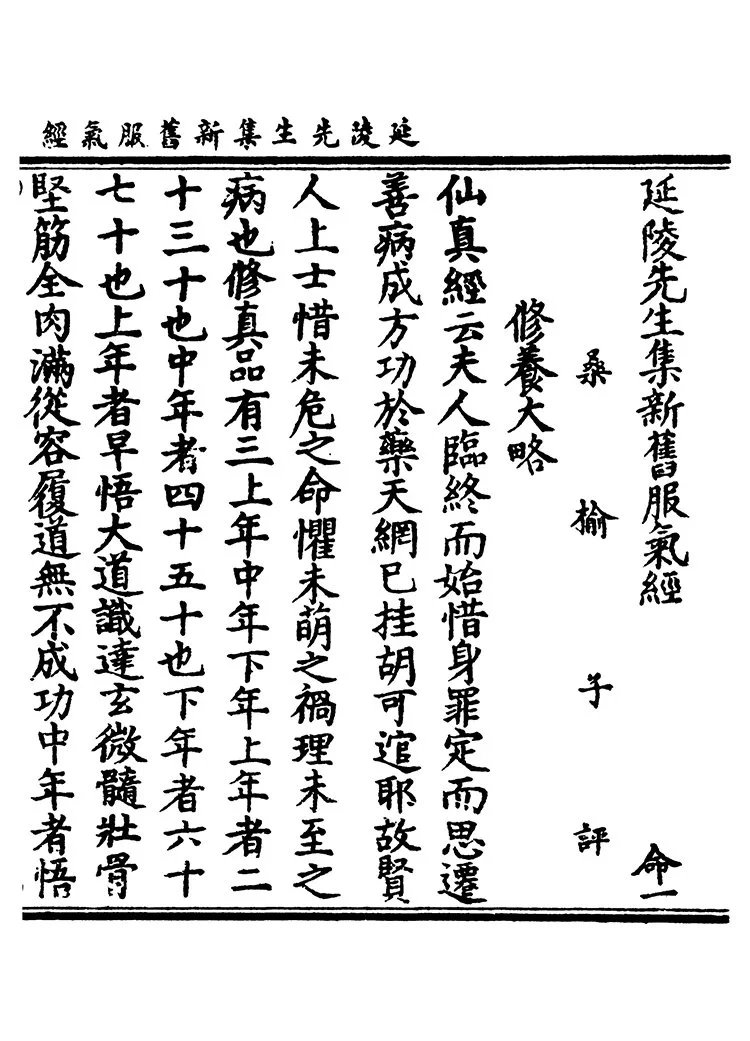 延陵先生集新舊服氣經
延陵先生集新舊服氣經 命一
桑榆子評
修養大略
仙真經云夫人臨終而始惜身罪定而思遷
善病成方功於藥天網已挂胡可逭耶故賢
人上士惜未危之命懼未萌之禍理未至之
病也修真品有三上年中年下年上年者二
十三十也中年者四十五十也下年者六十
七十也上年者早悟大道識達玄微髓壯骨
堅筋全肉滿從容履道無不成功中年者悟